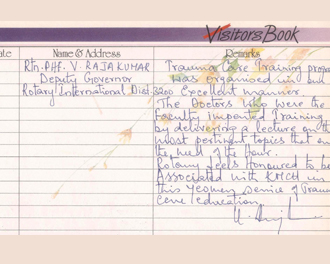 Visitors Book
ate Name & Address Remarks
Rtn. PHF. V. RAJAKUMAR
Deputy Governor
Rotary International Dist. 3200
Trauma Care Training progra
was organised in but
Excellent manner.
The Doctors who were the
Faculty imparted Training
by delivering a lecture on th
most pertinent topics that
the need of the hour.
Rotary feels honoured to be
Associated with KMCH in
this Yeomen service of Traum
Care education.